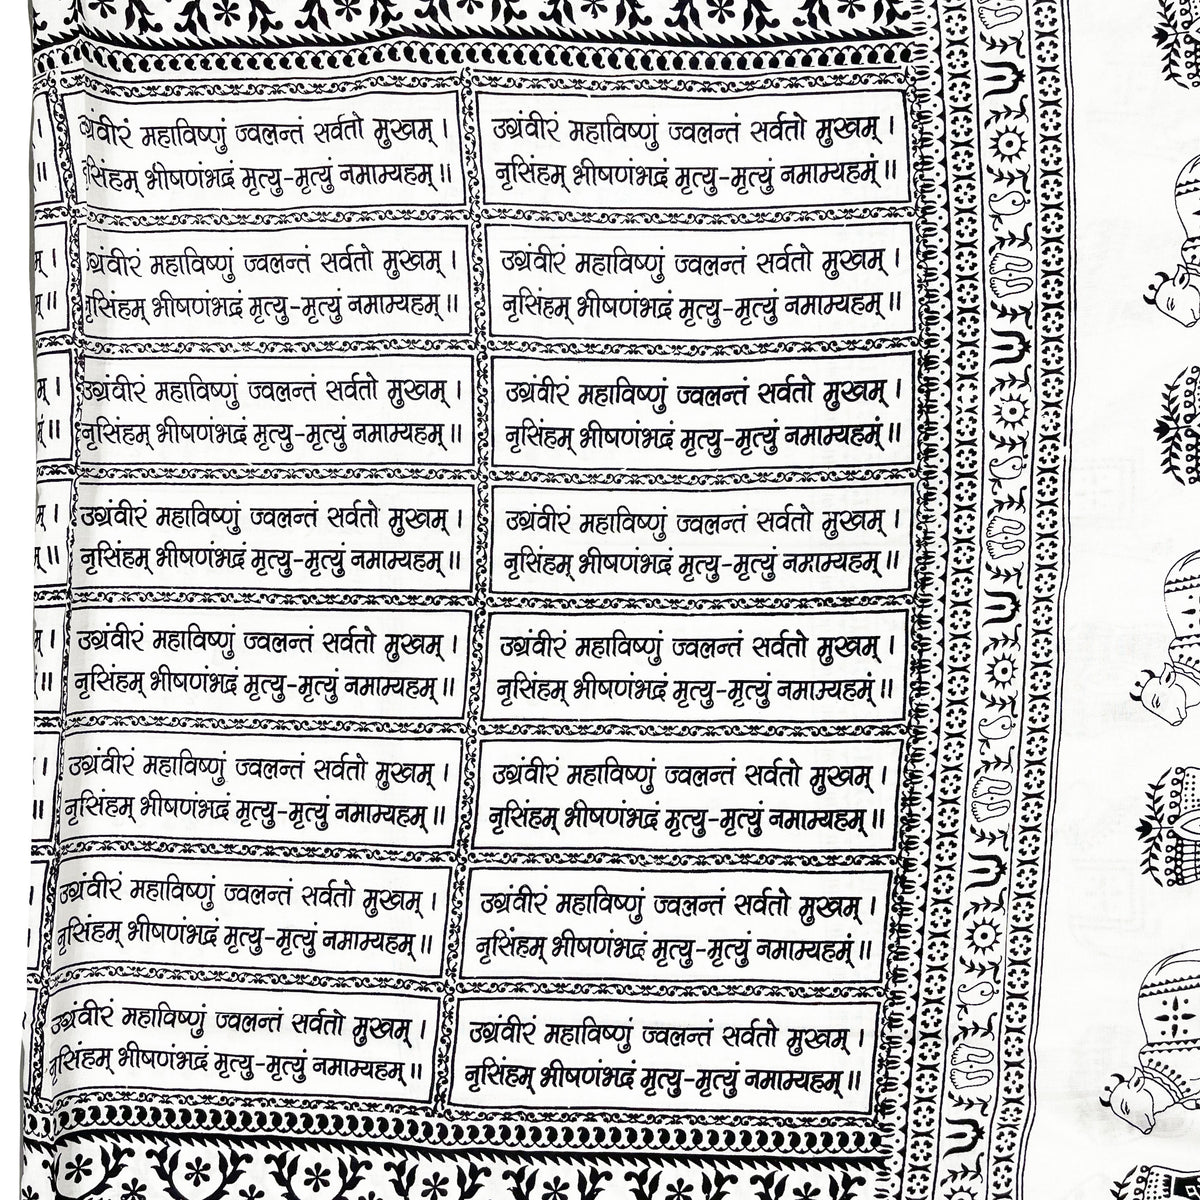 उग्रंवीरं महाविष्णुं ज्वलन्तं सर्वतो मुखम् ।
नृसिंहम् भीषणंभद्रं मृत्यु-मृत्युं नमाम्यहम् ॥
उग्रंवीरं महाविष्णुं ज्वलन्तं सर्वतो मुखम् ।
नृसिंहम् भीषणंभद्रं मृत्यु-मृत्युं नमाम्यहम् ॥
उग्रंवीरं महाविष्णुं ज्वलन्तं सर्वतो मुखम् ।
नृसिंहम् भीषणंभद्रं मृत्यु-मृत्युं नमाम्यहम् ॥
उग्रंवीरं महाविष्णुं ज्वलन्तं सर्वतो मुखम् ।
नृसिंहम् भीषणंभद्रं मृत्यु-मृत्युं नमाम्यहम् ॥
उग्रंवीरं महाविष्णुं ज्वलन्तं सर्वतो मुखम् ।
नृसिंहम् भीषणंभद्रं मृत्यु-मृत्युं नमाम्यहम् ॥
उग्रंवीरं महाविष्णुं ज्वलन्तं सर्वतो मुखम् ।
नृसिंहम् भीषणंभद्रं मृत्यु-मृत्युं नमाम्यहम् ॥
उग्रंवीरं महाविष्णुं ज्वलन्तं सर्वतो मुखम् ।
नृसिंहम् भीषणंभद्रं मृत्यु-मृत्युं नमाम्यहम् ॥
उग्रंवीरं महाविष्णुं ज्वलन्तं सर्वतो मुखम् ।
नृसिंहम् भीषणंभद्रं मृत्यु-मृत्युं नमाम्यहम् ॥
उग्रंवीरं महाविष्णुं ज्वलन्तं सर्वतो मुखम् ।
नृसिंहम् भीषणंभद्रं मृत्यु-मृत्युं नमाम्यहम् ॥
उग्रंवीरं महाविष्णुं ज्वलन्तं सर्वतो मुखम् ।
नृसिंहम् भीषणंभद्रं मृत्यु-मृत्युं नमाम्यहम् ॥
उग्रंवीरं महाविष्णुं ज्वलन्तं सर्वतो मुखम् ।
नृसिंहम् भीषणंभद्रं मृत्यु-मृत्युं नमाम्यहम् ॥
उग्रंवीरं महाविष्णुं ज्वलन्तं सर्वतो मुखम् ।
नृसिंहम् भीषणंभद्रं मृत्यु-मृत्युं नमाम्यहम् ॥
उग्रंवीरं महाविष्णुं ज्वलन्तं सर्वतो मुखम् ।
नृसिंहम् भीषणंभद्रं मृत्यु-मृत्युं नमाम्यहम् ॥
उग्रंवीरं महाविष्णुं ज्वलन्तं सर्वतो मुखम् ।
नृसिंहम् भीषणंभद्रं मृत्यु-मृत्युं नमाम्यहम् ॥
उग्रंवीरं महाविष्णुं ज्वलन्तं सर्वतो मुखम् ।
नृसिंहम् भीषणंभद्रं मृत्यु-मृत्युं नमाम्यहम् ॥
उग्रंवीरं महाविष्णुं ज्वलन्तं सर्वतो मुखम् ।
नृसिंहम् भीषणंभद्रं मृत्यु-मृत्युं नमाम्यहम् ॥